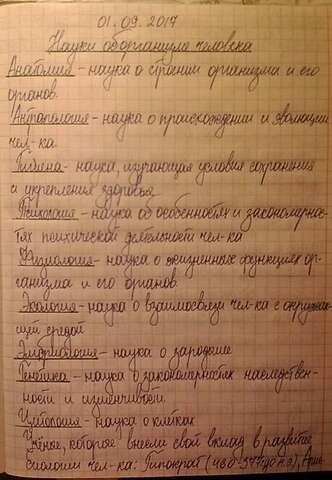 01.09.2017
Науки об организме человека
Анатомия - наука о строении организма и его
органов.
Антропология - наука о происхождении и эволюции
чел-ка.
Гигиена - наука, изучающая условия сохранения
и укрепления здоровья
Психология - наука об особенностях и закономернос-
тях психической деятельности чел-ка
Физиология - наука о жизненных функциях ор-
ганизма и его органов.
Экология - наука о взаимосвязи чел-ка с окружаю-
щей средой
Эмбриология - наука о зародыше
Генетика - наука о закономерностях наследствен-
ности и изменчивости.
Цитология - наука о клетках
Учёные, которые внесли свой вклад в развитие
биологии чел-ка: Гиппократ (460-377 до н.э),